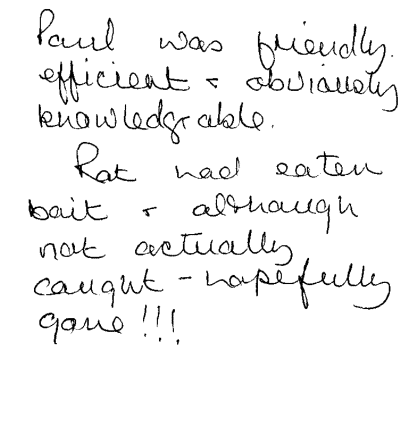 Paul was friendly.
efficient & obviously
knowledgable.
Rat had eaten
bait & although
not actually
caught - hopefully
gone !!!